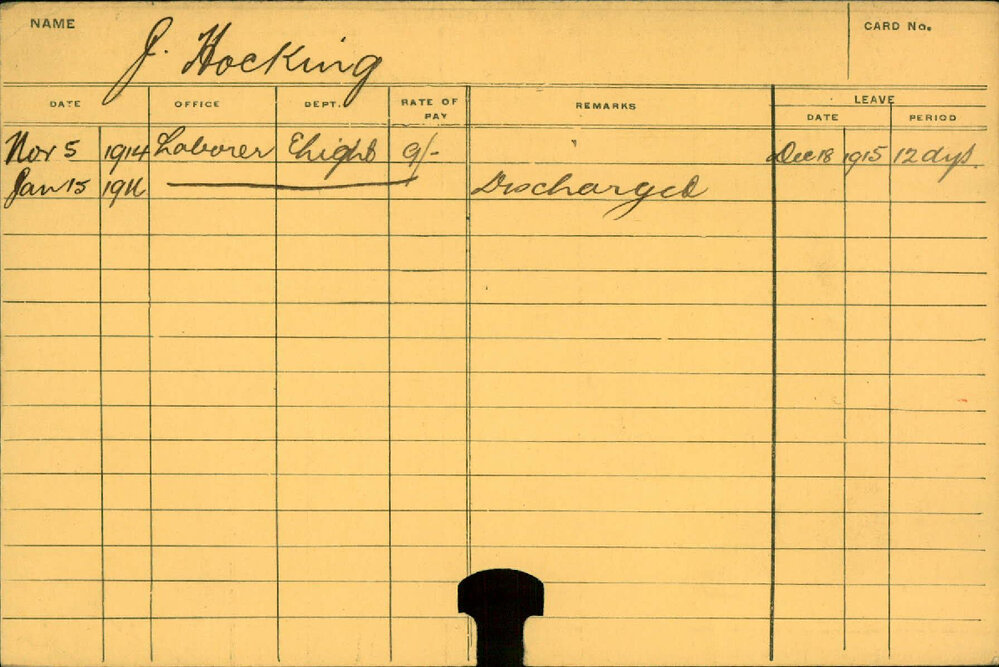 NAME J. Hocking CARD No.
DATE OFFICE DEPT. RATE OF PAY REMARKS LEAVE
DATE PERIOD
Nov 5 1914 Laborer 9/- Dec 18 1915 12 dys.
Jan 15 1916 Discharged